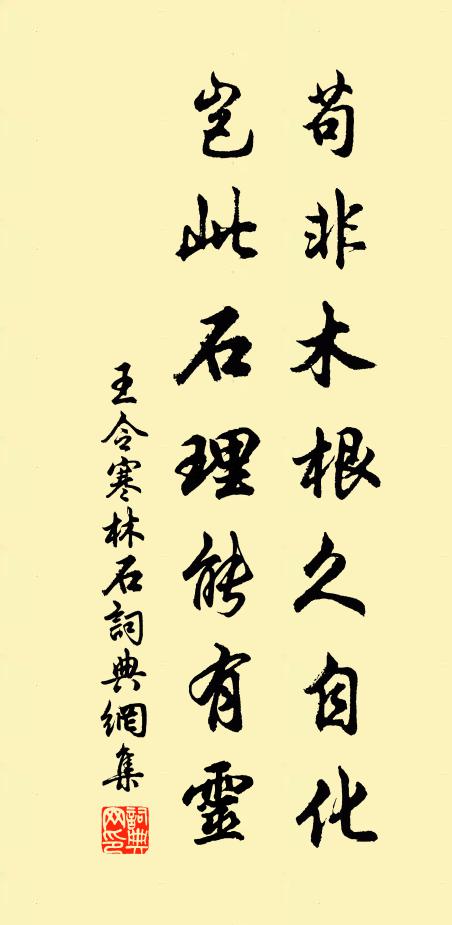 苟非木根久自化
豈此石理能有靈
王令寒林石詞典網集
詞典網印